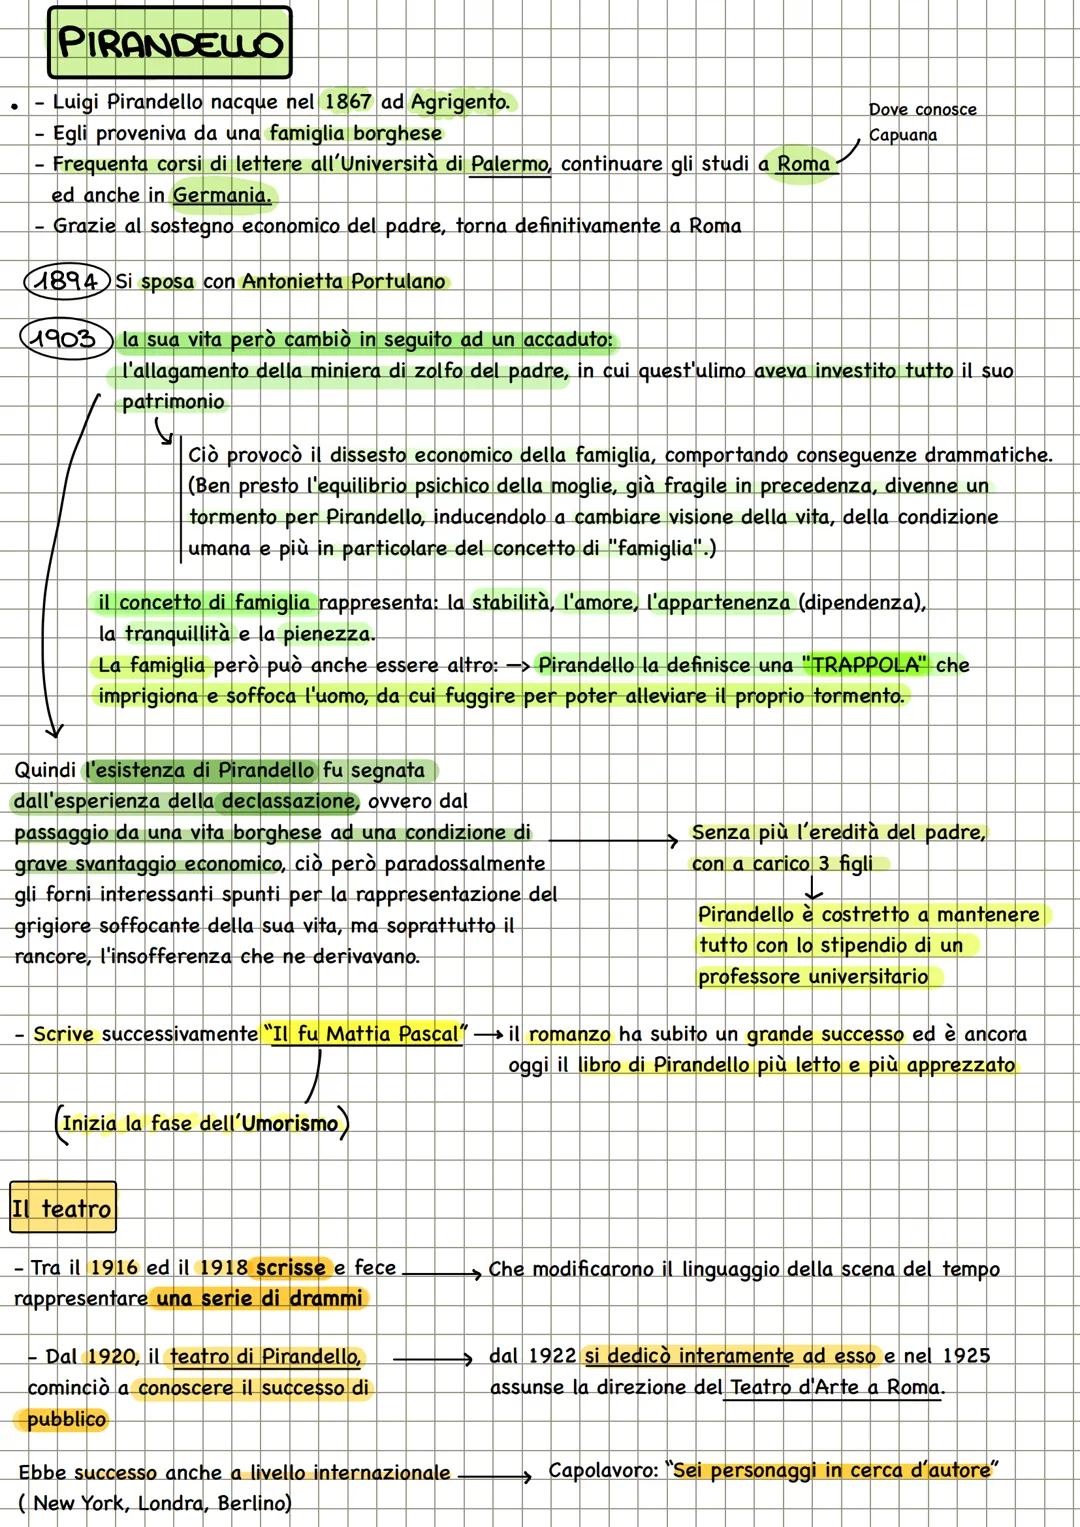 PIRANDELLO
- Luigi Pirandello nacque nel 1867 ad Agrigento.
- Egli proveniva da una famiglia borghese
Dove conosce
Capuana
- Frequenta corsi di lettere all'Università di Palermo, continuare gli studi a Roma
ed anche in Germania.
- Grazie al sostegno economico del padre, torna definitivamente a Roma
1894 Si sposa con Antonietta Portulano
1903 la sua vita però cambiò in seguito ad un accaduto:
l'allagamento della miniera di zolfo del padre, in cui quest'ulimo aveva investito tutto il suo
patrimonio
Ciò provocò il dissesto economico della famiglia, comportando conseguenze drammatiche.
(Ben presto l'equilibrio psichico della moglie, già fragile in precedenza, divenne un
tormento per Pirandello, inducendolo a cambiare visione della vita, della condizione
umana e più in particolare del concetto di "famiglia".)
il concetto di famiglia rappresenta: la stabilità, l'amore, l'appartenenza (dipendenza),
la tranquillità e la pienezza.
La famiglia però può anche essere altro: —> Pirandello la definisce una "TRAPPOLA" che
imprigiona e soffoca l'uomo, da cui fuggire per poter alleviare il proprio tormento.
Quindi l'esistenza di Pirandello fu segnata
dall'esperienza della declassazione, ovvero dal
passaggio da una vita borghese ad una condizione di
grave svantaggio economico, ciò però paradossalmente
gli forni interessanti spunti per la rappresentazione del
grigiore soffocante della sua vita, ma soprattutto il
rancore, l'insofferenza che ne derivavano.
Senza più l'eredità del padre,
con a carico 3 figli
Pirandello è costretto a mantenere
tutto con lo stipendio di un
professore universitario
- Scrive successivamente "Il fu Mattia Pascal" → il romanzo ha subito un grande successo ed è ancora
oggi il libro di Pirandello più letto e più apprezzato
(Inizia la fase dell'Umorismo)
Il teatro
- Tra il 1916 ed il 1918 scrisse e fece
rappresentare una serie di drammi
Che modificarono il linguaggio della scena del tempo
- Dal 1920, il teatro di Pirandello,
cominciò a conoscere il successo di
pubblico
dal 1922 si dedicò interamente ad esso e nel 1925
assunse la direzione del Teatro d'Arte a Roma.
Ebbe successo anche a livello internazionale
( New York, Londra, Berlino)
Capolavoro: "Sei personaggi in cerca d'autore"